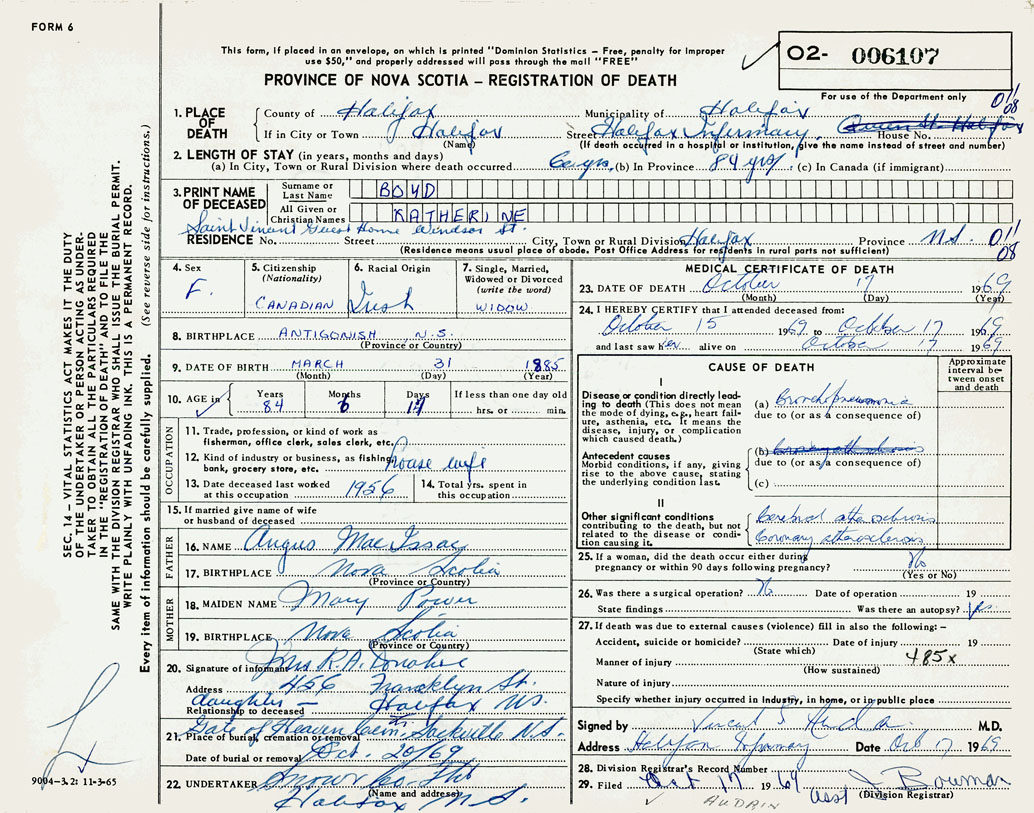 FORM 6
This form, if placed in an envelope, on which is printed "Dominion Statistics – Free, penalty for improper
use $50," and properly addressed will pass through the mail "FREE"
02- 006107
For use of the Department only
PROVINCE OF NOVA SCOTIA – REGISTRATION OF DEATH
1. PLACE OF DEATH
County of Halifax Municipality of Halifax 01/08
If in City or Town Halifax Street Halifax Infirmary. House No.
(Name) (If death occurred in a hospital or institution, give the name instead of street and number)
2. LENGTH OF STAY (in years, months and days)
(a) In City, Town or Rural Division where death occurred 60 yrs. (b) In Province 84 yrs. (c) In Canada (if immigrant)
3. PRINT NAME OF DECEASED
Surname or Last Name BOYD
All Given or Christian Names KATHERINE
Saint Vincent Guest Home Windsor St.
RESIDENCE No. Street City, Town or Rural Division Halifax Province N.S. 01/08
(Residence means usual place of abode. Post Office Address for residents in rural parts not sufficient)
4. Sex F.
5. Citizenship (Nationality) CANADIAN
6. Racial Origin Irish
7. Single, Married, Widowed or Divorced (write the word) WIDOW
8. BIRTHPLACE ANTIGONISH N.S.
(Province or Country)
9. DATE OF BIRTH MARCH 31 1885
(Month) (Day) (Year)
10. AGE in Years 84 Months 6 Days 17 If less than one day old
hrs. or min.
OCCUPATION
11. Trade, profession, or kind of work as
fisherman, office clerk, sales clerk, etc.
12. Kind of industry or business, as fishing,
bank, grocery store, etc. house wife
13. Date deceased last worked
at this occupation 1956
14. Total yrs. spent in
this occupation
15. If married give name of wife
or husband of deceased
FATHER
16. NAME Angus MacIssac
17. BIRTHPLACE Nova Scotia
(Province or Country)
MOTHER
18. MAIDEN NAME Mary Power
19. BIRTHPLACE Nova Scotia
(Province or Country)
20. Signature of informant Mrs R.A. Donahoe
Address 456 Francklyn St.
daughter – Halifax N.S.
Relationship to deceased
Gate of Heaven Cem. Sackville N.S.
21. Place of burial, cremation or removal
Date of burial or removal Oct. 20/69
22. UNDERTAKER Snow & Co Ltd
(Name and address)
Halifax N.S.
MEDICAL CERTIFICATE OF DEATH
23. DATE OF DEATH October 17 1969
(Month) (Day) (Year)
24. I HEREBY CERTIFY that I attended deceased from:
October 15 1969 to October 17 1969
and last saw her alive on October 17 1969
CAUSE OF DEATH
Approximate interval between onset and death
I
Disease or condition directly leading to death (This does not mean the mode of dying, e.g., heart failure, asthenia, etc. It means the disease, injury, or complication which caused death.)
(a) Bronchopneumonia
due to (or as a consequence of)
Antecedent causes
Morbid conditions, if any, giving rise to the above cause, stating the underlying condition last.
(b)
due to (or as a consequence of)
(c)
II
Other significant conditions
contributing to the death, but not related to the disease or condition causing it.
Cerebral atherosclerosis
Coronary atherosclerosis
25. If a woman, did the death occur either during
pregnancy or within 90 days following pregnancy? No
(Yes or No)
26. Was there a surgical operation? No Date of operation 19
State findings Was there an autopsy? yes
27. If death was due to external causes (violence) fill in also the following: –
Accident, suicide or homicide? Date of injury 19
(State which)
Manner of injury 485x
(How sustained)
Nature of injury
Specify whether injury occurred in industry, in home, or in public place
Signed by Vincent M.D.
Address Halifax Infirmary Date Oct 17 1969
28. Division Registrar's Record Number
29. Filed Oct 17 1969 Asst J. Bowman
(Division Registrar)
SEC. 14 – VITAL STATISTICS ACT MAKES IT THE DUTY
OF THE UNDERTAKER OR PERSON ACTING AS UNDER-
TAKER TO OBTAIN ALL THE PARTICULARS REQUIRED
IN THE "REGISTRATION OF DEATH" AND TO FILE THE
SAME WITH THE DIVISION REGISTRAR WHO SHALL ISSUE THE BURIAL PERMIT.
WRITE PLAINLY WITH UNFADING INK. THIS IS A PERMANENT RECORD.
Every item of information should be carefully supplied. (See reverse side for instructions.)
9004-3.2: 11-3-65